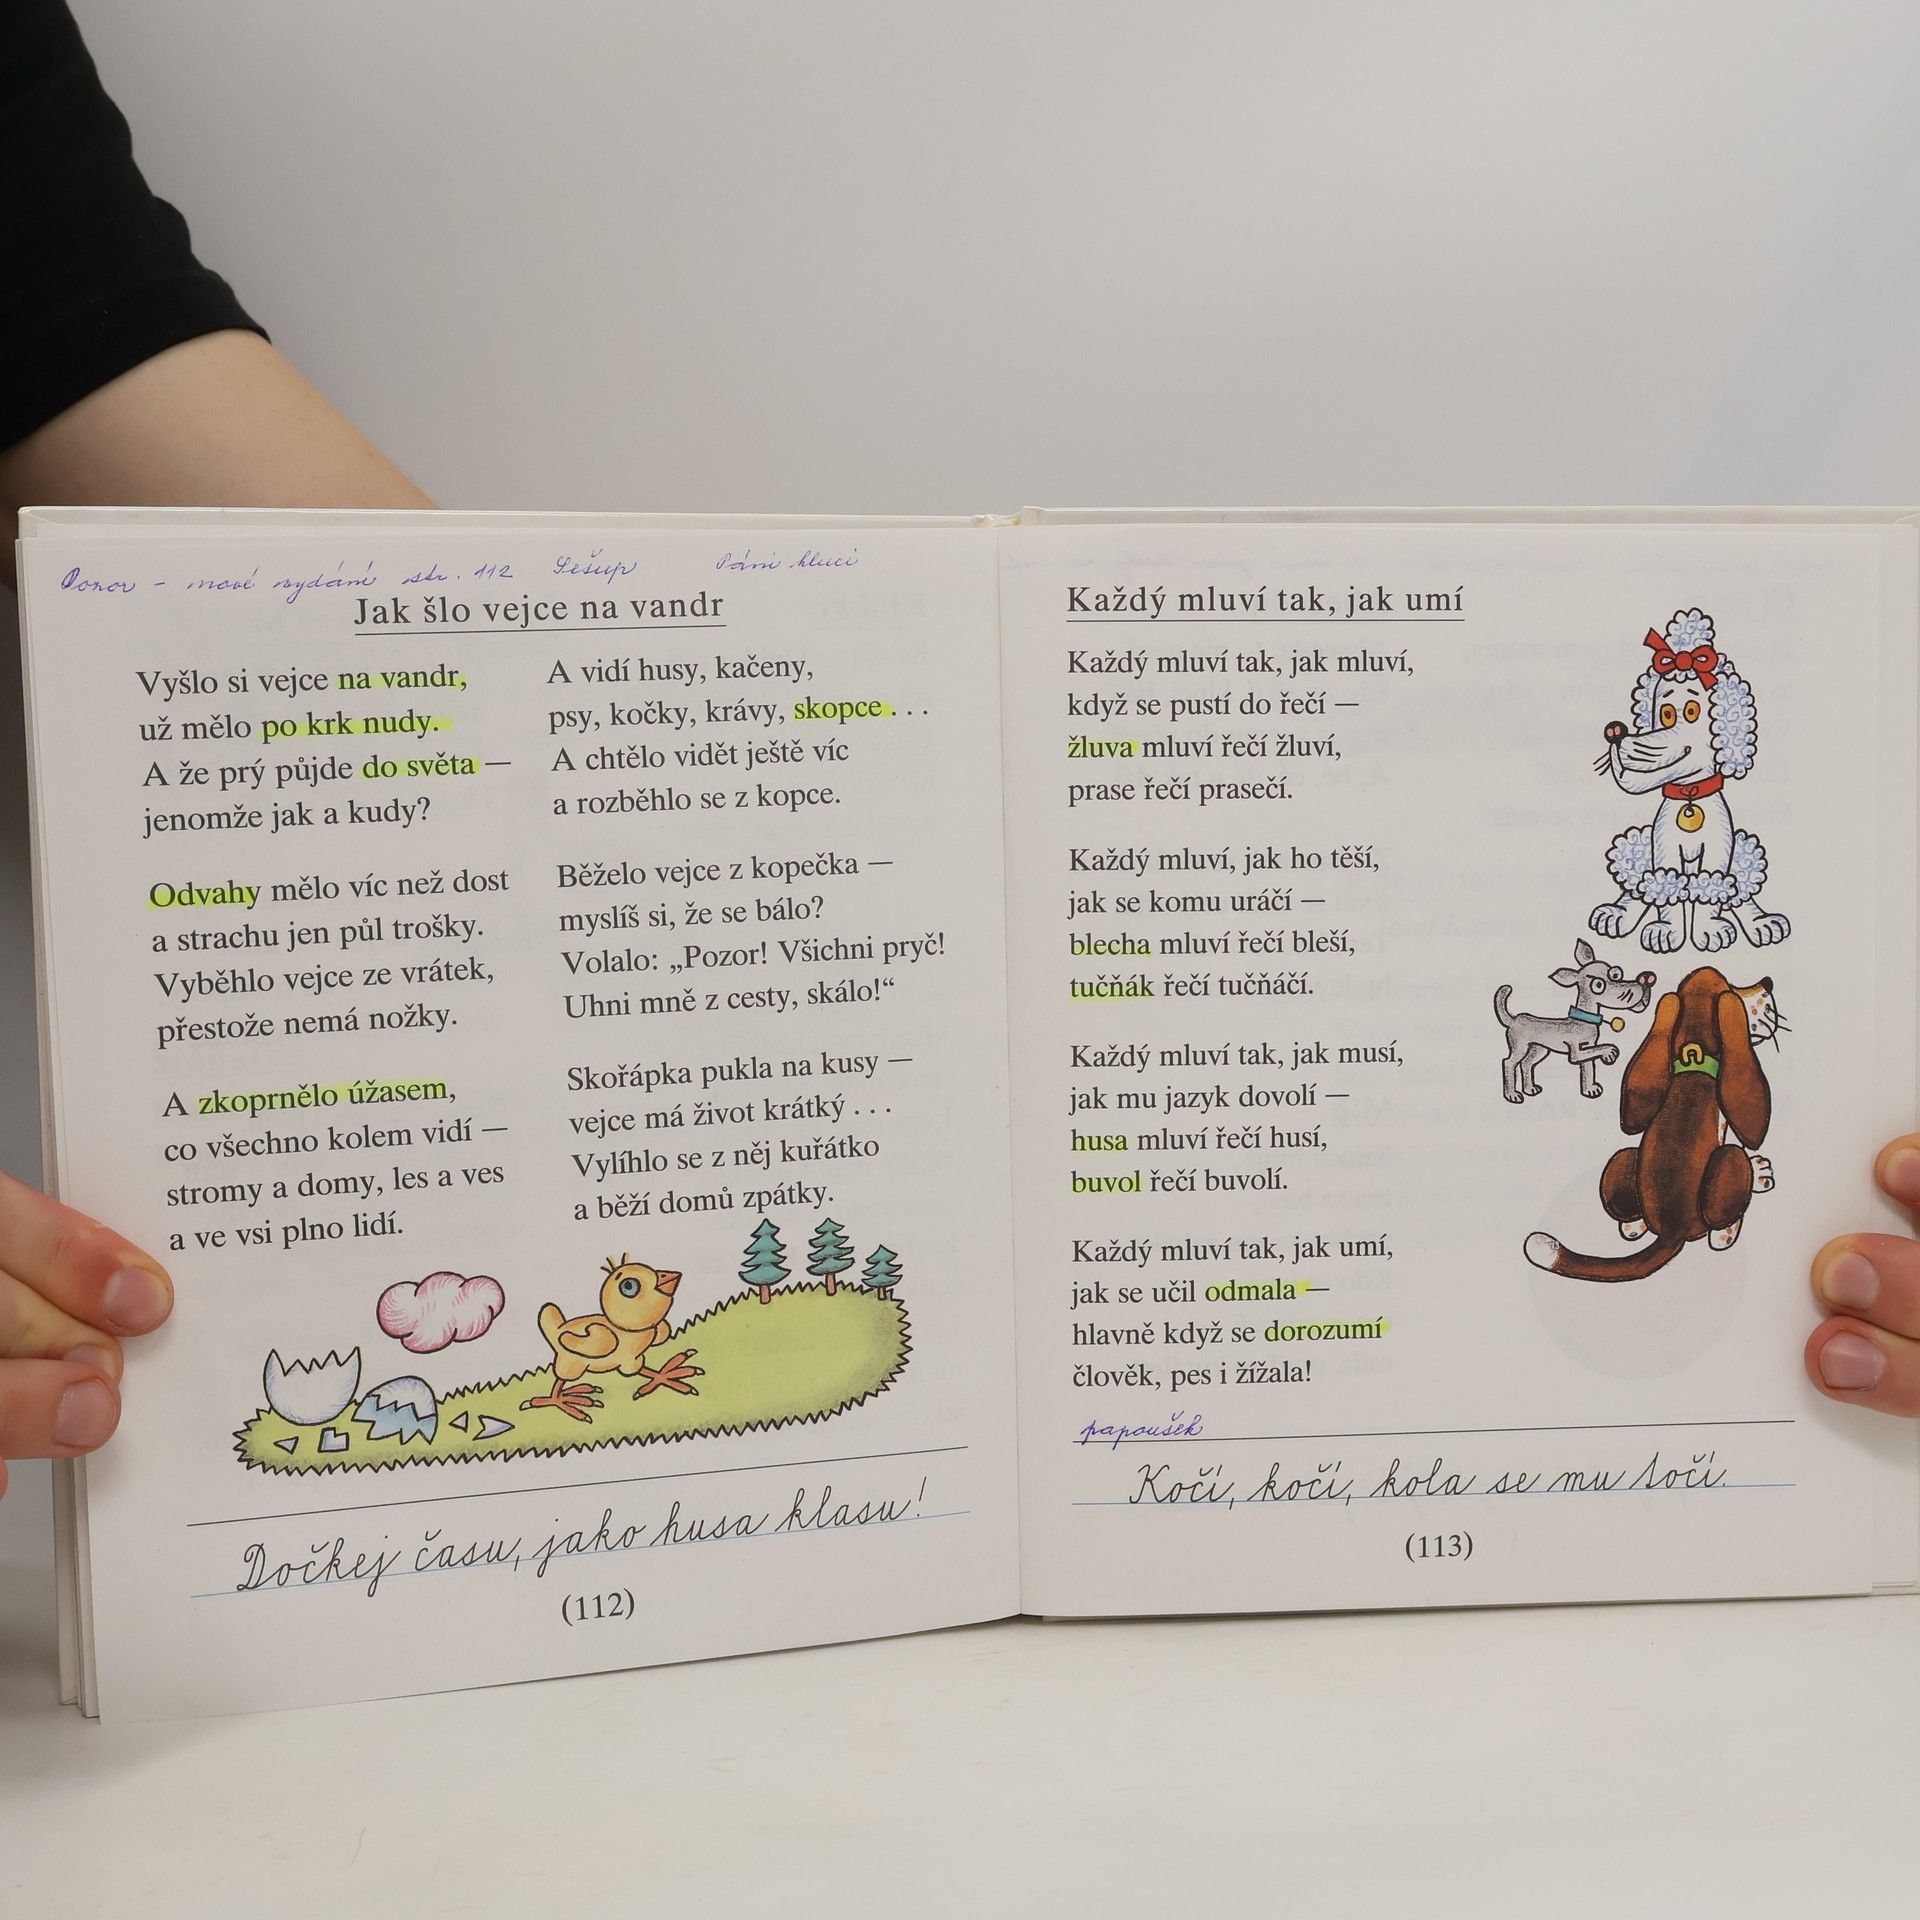 Pozor - nové vydání str. 112 Sešup Páni kluci
Jak šlo vejce na vandr
Vyšlo si vejce na vandr,
už mělo po krk nudy.
A že prý půjde do světa —
jenomže jak a kudy?
Odvahy mělo víc než dost
a strachu jen půl trošky.
Vyběhlo vejce ze vrátek,
přestože nemá nožky.
A zkoprnělo úžasem,
co všechno kolem vidí —
stromy a domy, les a ves
a ve vsi plno lidí.
A vidí husy, kačeny,
psy, kočky, krávy, skopce . . .
A chtělo vidět ještě víc
a rozběhlo se z kopce.
Běželo vejce z kopečka —
myslíš si, že se bálo?
Volalo: „Pozor! Všichni pryč!
Uhni mně z cesty, skálo!“
Skořápka pukla na kusy —
vejce má život krátký . . .
Vylíhlo se z něj kuřátko
a běží domů zpátky.
Dočkej času, jako husa klasu!
(112)
Každý mluví tak, jak umí
Každý mluví tak, jak mluví,
když se pustí do řečí —
žluva mluví řečí žluví,
prase řečí prasečí.
Každý mluví, jak ho těší,
jak se komu uráčí —
blecha mluví řečí bleší,
tučňák řečí tučňáčí.
Každý mluví tak, jak musí,
jak mu jazyk dovolí —
husa mluví řečí husí,
buvol řečí buvolí.
Každý mluví tak, jak umí,
jak se učil odmala —
hlavně když se dorozumí
člověk, pes i žížala!
papoušek
Kočí, kočí, kola se mu točí.
(113)